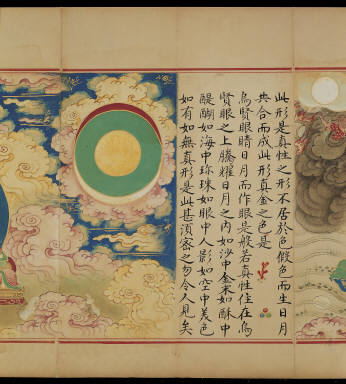 此形是真性之形不居於色假色而生日月
共合而成此形真金之色是
烏賢眼睛日月而作眼是般若真性住在烏
賢眼之上騰耀日月之內如沙中金來如酥中
醍醐如海中珎珠如眼中人影如空中美色
如有如無真形是此甚須密之勿令人見矣